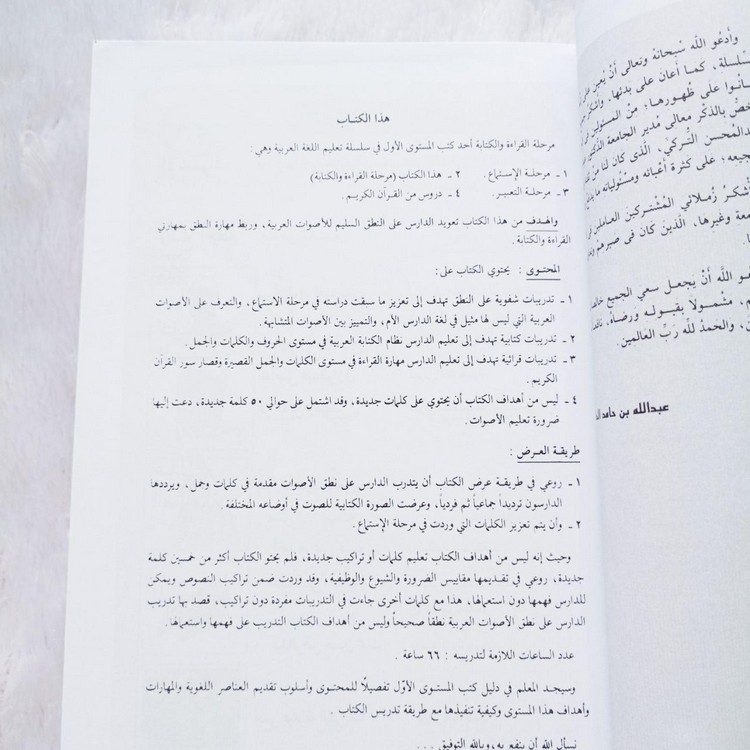 هذا الكتاب
مرحلة القراءة والكتابة أحد كتب المستوى الأول في سلسلة تعليم اللغة العربية وهي :
١ ـ مرحلـة الإستمـاع . ٢ ـ هـذا الكتاب (مرحلة القراءة والكتابة)
٣ ـ مرحلـة التعبيـر . ٤ ـ دروس من القـرآن الكريـم .
والهدف من هذا الكتاب تعويد الدارس على النطق السليم للأصوات العربية ، وربط مهارة النطق بمهارتي
القراءة والكتابة .
المحتوى : يحتوي الكتاب على:
١ ـ تدريبات شفوية على النطق تهدف إلى تعزيز ما سبقت دراسته في مرحلة الاستماع، والتعرف على الأصوات
العربية التي ليس لها مثيل في لغة الدارس الأم، والتمييز بين الأصوات المتشابهة.
٢ ـ تدريبات كتابية تهدف إلى تعليم الدارس نظام الكتابة العربية في مستوى الحروف والكلمات والجمل.
٣ ـ تدريبات قرائية تهدف إلى تعليم الدارس مهارة القراءة في مستوى الكلمات والجمل القصيرة وقصار سور القرآن
الكريم .
٤ ـ ليس من أهداف الكتاب أن يحتوي على كلمات جديدة، وقد اشتمل على حوالي ٥٠ كلمة جديدة، دعت إليها
ضرورة تعليم الأصوات.
طريقـة العـرض :
١ ـ روعي في طريقـة عرض الكتاب أن يتدرب الدارس على نطق الأصوات مقدمة في كلمات وجمل، ويرددها
الدارسون ترديداً جماعياً ثم فردياً، وعرضت الصورة الكتابية للصوت في أوضاعه المختلفة.
٢ ـ وأن يتم تعزيز الكلمات التي وردت في مرحلة الإستماع .
وحيث إنه ليس من أهداف الكتاب تعليم كلمات أو تراكيب جديدة، فلم يحتو الكتاب أكثر من خمسين كلمة
جديدة، روعي في تقديمها مقاييس الضرورة والشيوع والوظيفية، وقد وردت ضمن تراكيب النصوص ويمكن
للدارس فهمها دون استعمالها، هذا مع كلمات أخرى جاءت في التدريبات مفردة دون تراكيب، قصد بها تدريب
الدارس على نطق الأصوات العربية نطقاً صحيحاً وليس من أهداف الكتاب التدريب على فهمها واستعمالها.
عدد الساعات اللازمة لتدريسه : ٦٦ ساعة .
وسيجـد المعلم في دليل كتب المستـوى الأوّل تفصيلًا للمحتـوى وأسلوب تقديم العناصر اللغوية والمهارات
وأهداف هذا المستوى وكيفية تنفيذها مع طريقة تدريس الكتاب .
نسأل الله أن ينفع به، وبالله التوفيق . . .
وأدعُو الله سُبحانه وتعالى أنْ يُعين على
سلسلة، كمـا أعانَ على بدئها، وأشكُر
انُوا على ظُهورهـا؛ مِنْ المسئولين في
خصُّ بالذكْر معالي مُدير الجامعة الدكتور
دالمُحسن التُركي، الّذي كان لنَا مِنْ
جيعه؛ على كثرة أعبائه ومسئولياته ما
أشكُرَ زُملائي المُشْتركينَ العاملين في
معة وغيرها، الّذينَ كان في صبرهمْ
عو الله أنْ يجعل سعي الجميع
م، مشْمـولاً بقبـولـه ورضاهُ،
ن، والحَمدُ لله رَبِّ العالمين.
عبدالله بن حامد